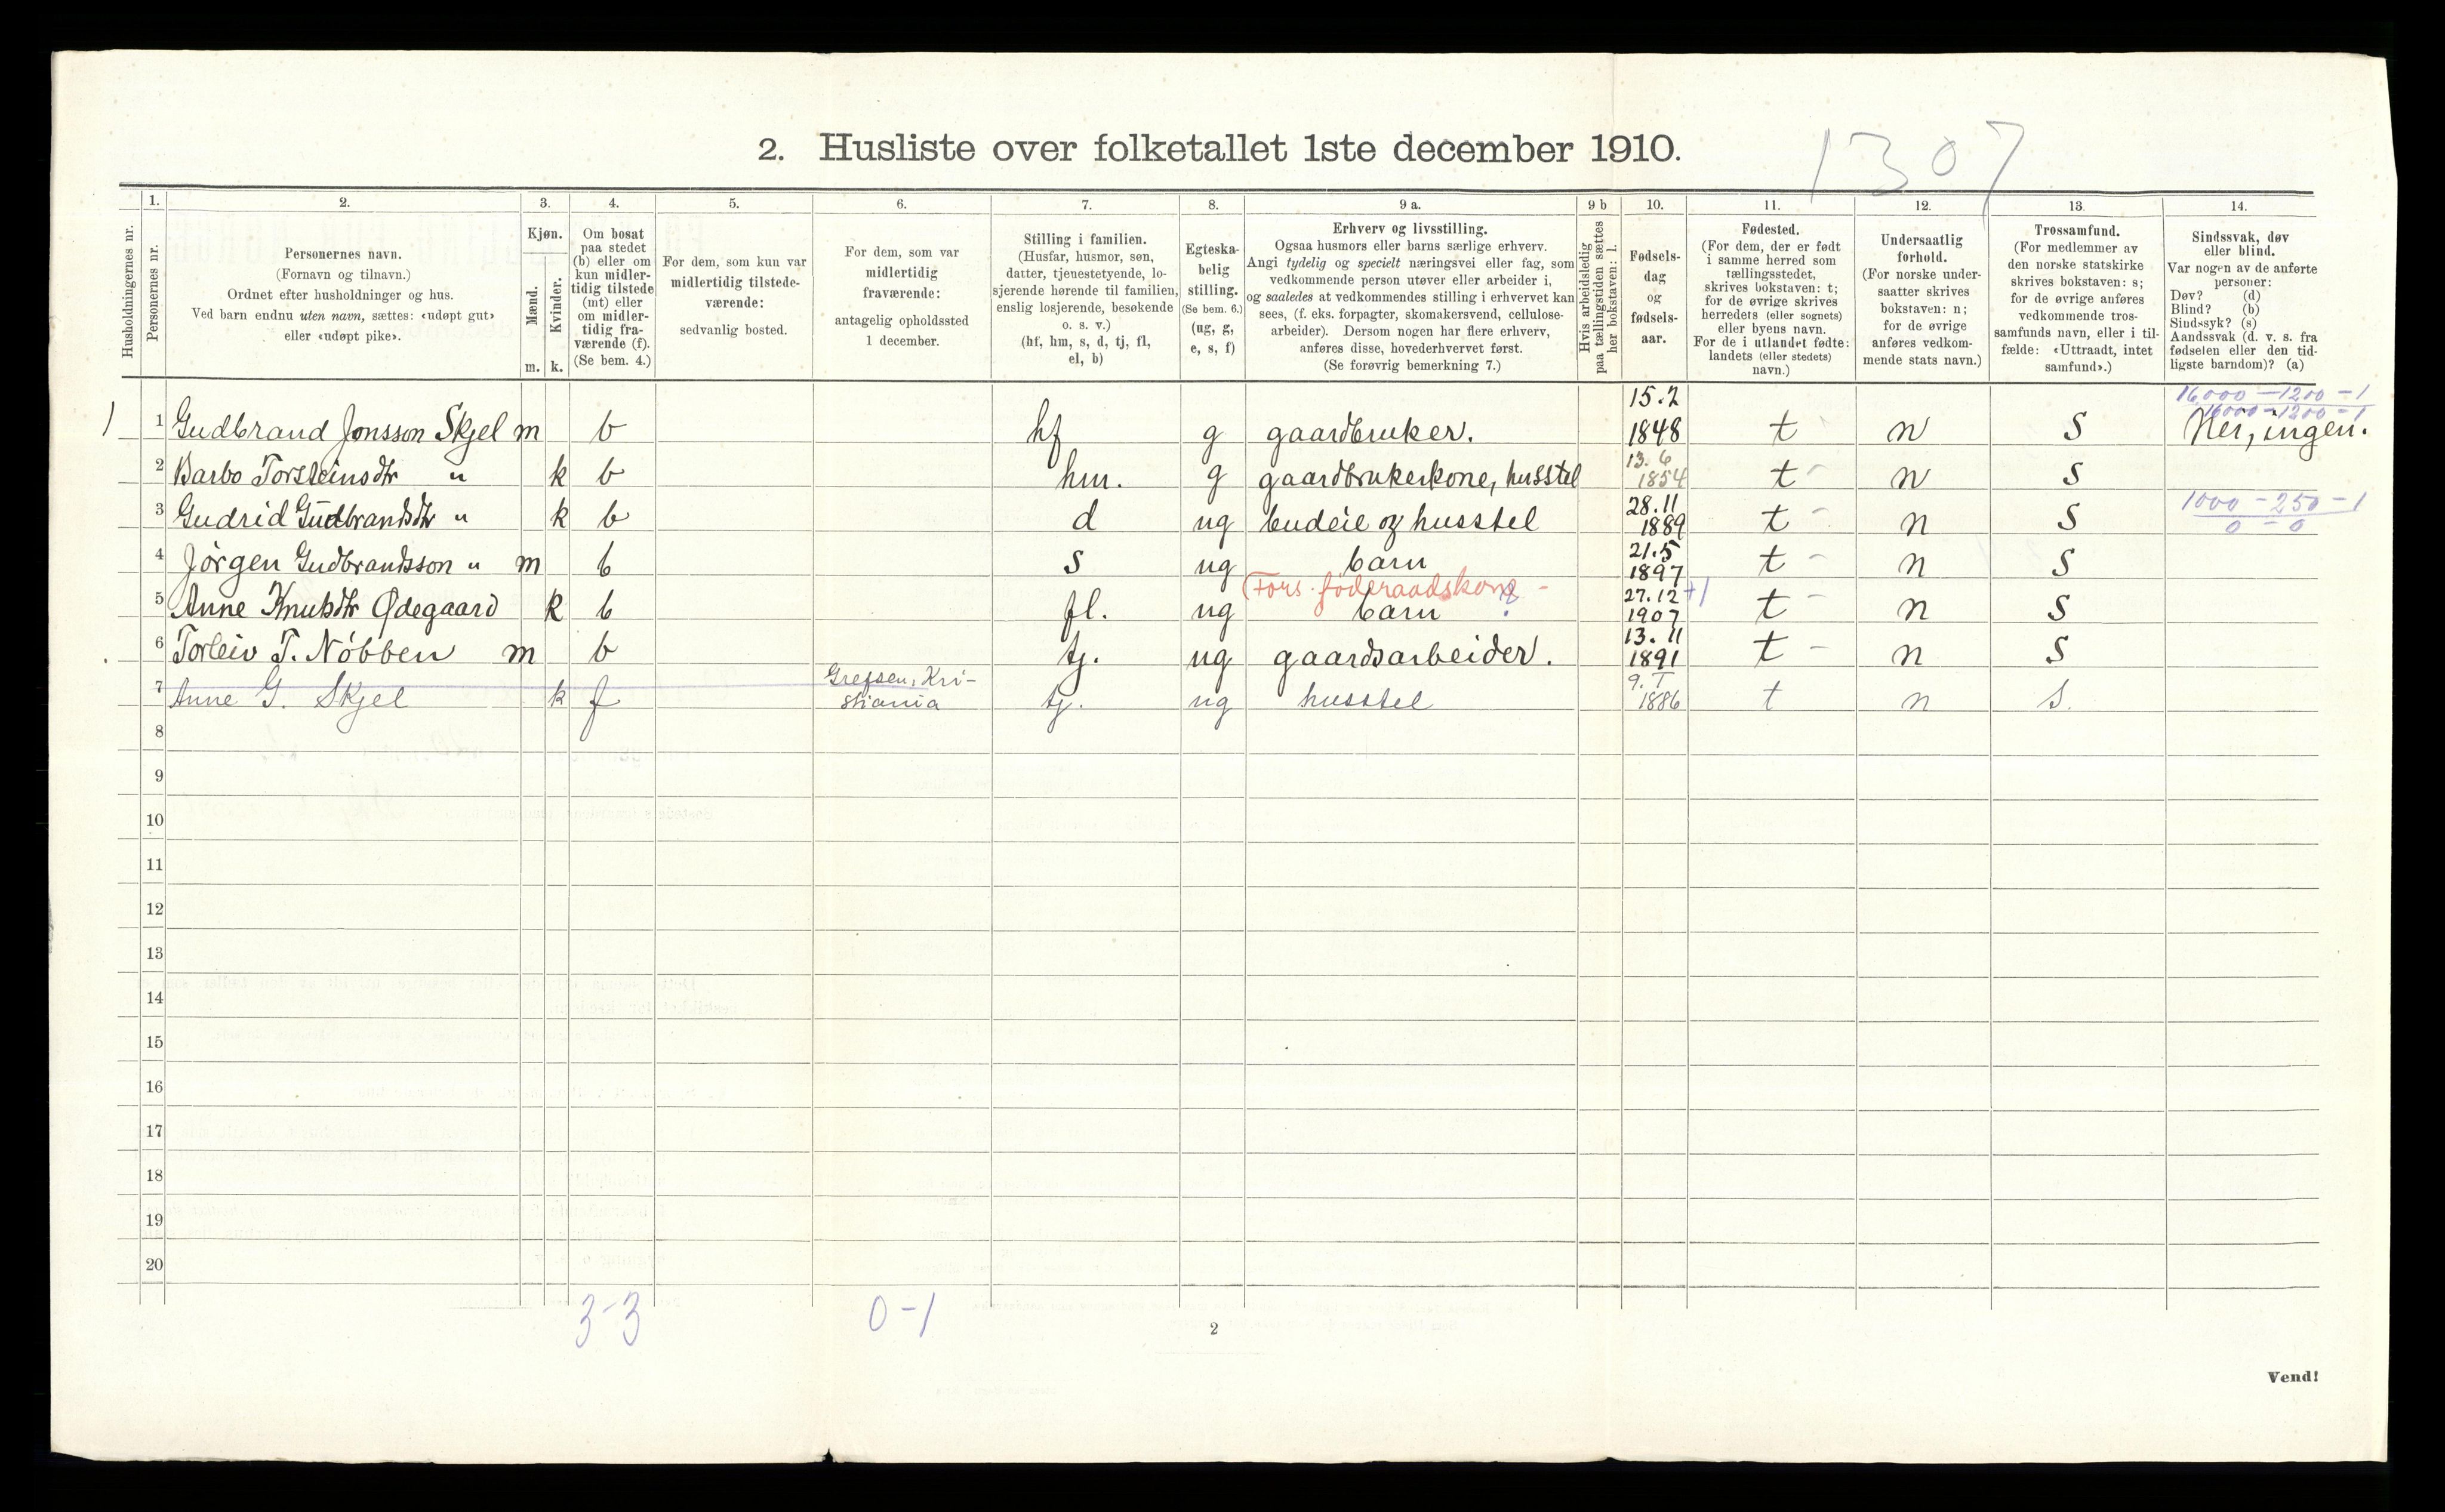 2. Husliste over folketallet 1ste december 1910.
1307
Husholdningernes nr.
1.
Personernes nr.
2.
Personernes navn.
(Fornavn og tilnavn.)
Ordnet efter husholdninger og hus.
Ved barn endnu uten navn, sættes: «udøpt gut»
eller «udøpt pike».
3.
Kjøn.
Mænd.
Kvinder.
m. k.
4.
Om bosat
paa stedet
(b) eller om
kun midler-
tidig tilstede
(mt) eller
om midler-
tidig fra-
værende (f).
(Se bem. 4.)
5.
For dem, som kun var
midlertidig tilstede-
værende:
sedvanlig bosted.
6.
For dem, som var
midlertidig
fraværende:
antagelig opholdssted
1 december.
7.
Stilling i familien.
(Husfar, husmor, søn,
datter, tjenestetyende, lo-
sjerende hørende til familien,
enslig losjerende, besøkende
o. s. v.)
(hf, hm, s, d, tj, fl,
el, b)
8.
Egteska-
belig
stilling.
(Se bem. 6.)
(ug, g,
e, s, f)
9 a.
Erhverv og livsstilling.
Ogsaa husmors eller barns særlige erhverv.
Angi tydelig og specielt næringsvei eller fag, som
vedkommende person utøver eller arbeider i,
og saaledes at vedkommendes stilling i erhvervet kan
sees, (f. eks. forpagter, skomakersvend, cellulose-
arbeider). Dersom nogen har flere erhverv,
anføres disse, hovederhvervet først.
(Se forøvrig bemerkning 7.)
9 b
Hvis arbeidsledig
paa tællingstiden sættes
her bokstaven: l.
10.
Fødsels-
dag
og
fødsels-
aar.
11.
Fødested.
(For dem, der er født
i samme herred som
tællingsstedet,
skrives bokstaven: t;
for de øvrige skrives
herredets (eller sognets)
eller byens navn.
For de i utlandet fødte:
landets (eller stedets)
navn.)
12.
Undersaatlig
forhold.
(For norske under-
saatter skrives
bokstaven: n;
for de øvrige
anføres vedkom-
mende stats navn.)
13.
Trossamfund.
(For medlemmer av
den norske statskirke
skrives bokstaven: s;
for de øvrige anføres
vedkommende tros-
samfunds navn, eller i til-
fælde: «Uttraadt, intet
samfund».)
14.
Sindssvak, døv
eller blind.
Var nogen av de anførte
personer:
Døv? (d)
Blind? (b)
Sindssyk? (s)
Aandssvak (d. v. s. fra
fødselen eller den tid-
ligste barndom)? (a)
16000 - 1200 - 1
16000 - 1200 - 1
1 1 Gudbrand Jonsson Skjel m b hf g gaardbruker. 15.2 1848 t n S Nei, ingen.
2 Barbo Torsteinsdtr " k b hm. g gaardbrukerkone, husstel 13.6 1854 t - n S
3 Gudrid Gudbrandsdtr " k b d ug budeie og husstel 28.11 1889 t - n S 1000 - 250 - 1
0 - 0
4 Jörgen Gudbrandsson " m b s ug barn 21.5 1897 t - n S
(Fors. föderaadskone -
5 Anne Knutsdtr Ødegaard k b fl. ug barn ? 27.12 1907 +1 t - n S
6 Torleiv T. Nöbben m b tj. ug gaardsarbeider. 13.11 1891 t - n S
7 Anne G. Skjel k f Grefsen, Kri-
stiania tj. ug husstel 9.7 1886 t n s.
8
9
10
11
12
13
14
15
16
17
18
19
20
3-3 0-1
2
Vend!